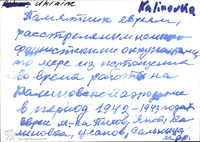 Ukraine Kalinovka
Памятник евреям,
расстрелянным немецко
фашистскими оккупантами
по мере из
во время работы на
Калиновском аэродроме
в период 1942-1943 годах
евреи м-ка Пиков, Янов, Ка
линовка, Уланов, Сальница
и др.